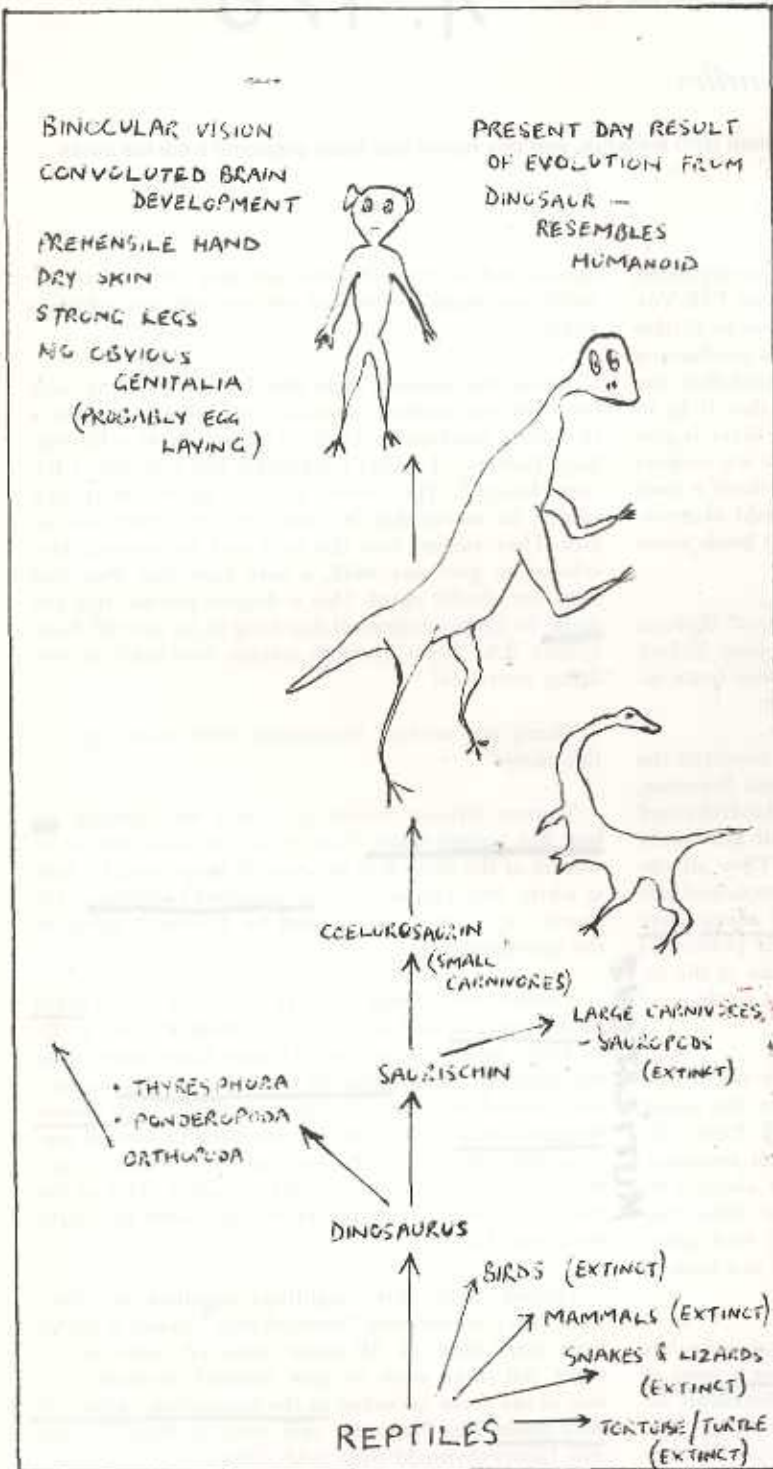 BINOCULAR VISION
CONVOLUTED BRAIN
DEVELOPMENT
PREHENSILE HAND
DRY SKIN
STRONG LEGS
NO OBVIOUS
GENITALIA
(PROBABLY EGG
LAYING)
PRESENT DAY RESULT
OF EVOLUTION FROM
DINOSAUR —
RESEMBLES
HUMANOID
COELUROSAURIN
(SMALL
CARNIVORES)
LARGE CARNIVORES,
- SAUROPODS
(EXTINCT)
SAURISCHIN
• THYRESPHORA
• PONDEROPODA
ORTHOPODA
DINOSAURUS
BIRDS (EXTINCT)
MAMMALS (EXTINCT)
SNAKES & LIZARDS
(EXTINCT)
TORTOISE/TURTLE
(EXTINCT)
REPTILES